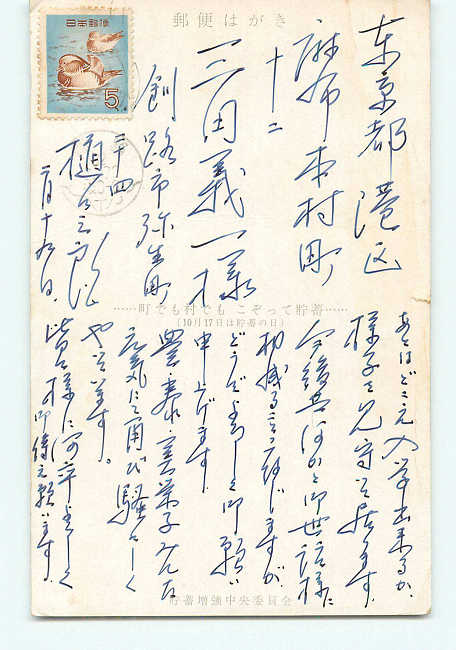 郵便はがき
日本郵便
5
東京都港区
麻布本村町
十二
三田義一様
釧路市弥生町
二十四
樋口
二月十九日
……町でも村でも こぞって貯蓄……
(10月17日は貯蓄の日)
あとはどこえ入学出来るか、
様子を見守って居ります
今後共何かと御世話様に
相成ることと存じますが
どうぞよろしく御願い
申上げます
豊、泰、美栄子みんな
元気にて再び騒々しく
やっています。
皆々様に何卒よろしく
御傳え願います
貯蓄増強中央委員会